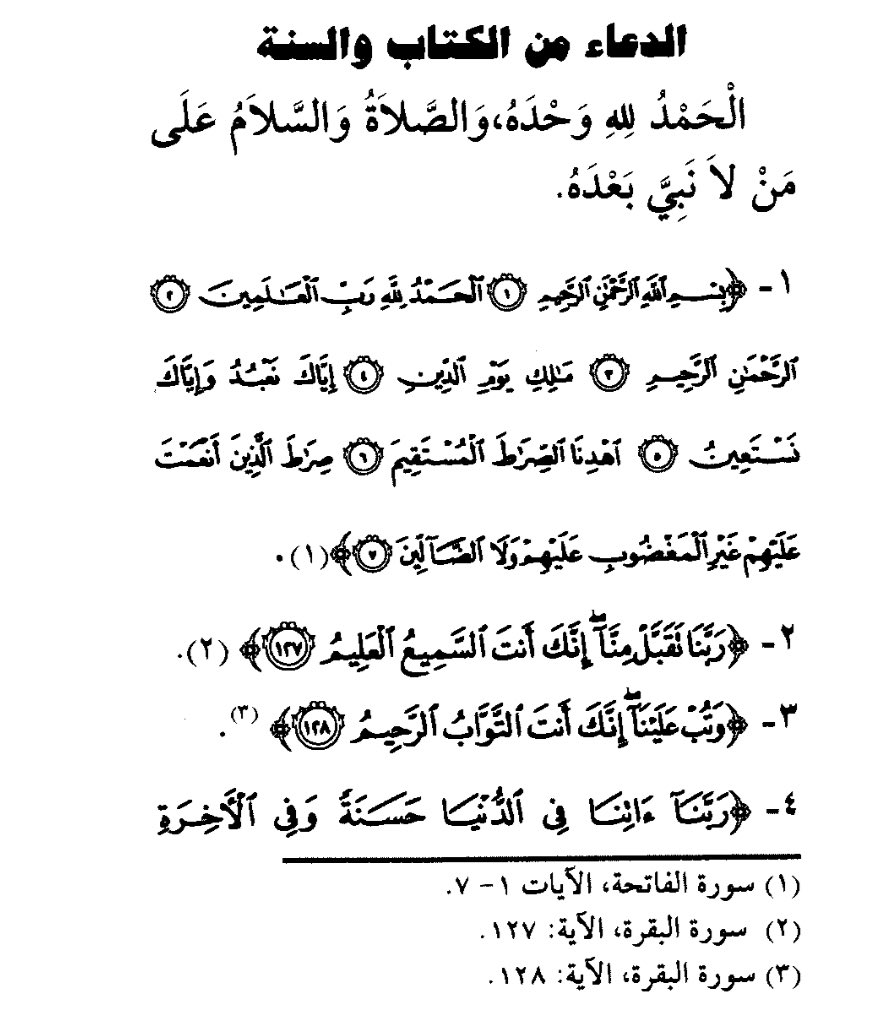 الدعاء من الكتاب والسنة
الْحَمْدُ لِلهِ وَحْدَهُ،وَالصَّلاَةُ وَالسَّلاَمُ عَلَى
مَنْ لاَ نَبِيَّ بَعْدَهُ.
١- ﴿بِسْمِ ٱللَّهِ ٱلرَّحْمَٰنِ ٱلرَّحِيمِ ١ ٱلْحَمْدُ لِلَّهِ رَبِّ ٱلْعَٰلَمِينَ ٢
ٱلرَّحْمَٰنِ ٱلرَّحِيمِ ٣ مَٰلِكِ يَوْمِ ٱلدِّينِ ٤ إِيَّاكَ نَعْبُدُ وَإِيَّاكَ
نَسْتَعِينُ ٥ ٱهْدِنَا ٱلصِّرَٰطَ ٱلْمُسْتَقِيمَ ٦ صِرَٰطَ ٱلَّذِينَ أَنْعَمْتَ
عَلَيْهِمْ غَيْرِ ٱلْمَغْضُوبِ عَلَيْهِمْ وَلَا ٱلضَّآلِّينَ ٧﴾(١).
٢- ﴿رَبَّنَا تَقَبَّلْ مِنَّآ ۖ إِنَّكَ أَنتَ ٱلسَّمِيعُ ٱلْعَلِيمُ ١٢٧﴾ (٢).
٣- ﴿وَتُبْ عَلَيْنَآ ۖ إِنَّكَ أَنتَ ٱلتَّوَّابُ ٱلرَّحِيمُ ١٢٨﴾ (٣).
٤- ﴿رَبَّنَآ ءَاتِنَا فِي ٱلدُّنْيَا حَسَنَةً وَفِي ٱلْأَخِرَةِ
(١) سورة الفاتحة، الآيات ١- ٧.
(٢) سورة البقرة، الآية: ١٢٧.
(٣) سورة البقرة، الآية: ١٢٨.